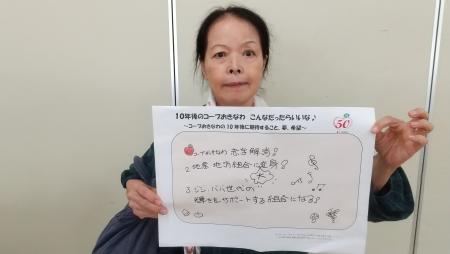 10年後のコープおきなわ こんなだったらいいな♪
~コープおきなわの10年後に期待すること、夢、希望~
50
コープおきなわ 赤字解消!
2. 地産地消組合に変身!
大
3. ジジ、ババ世代の
輝きをサポートする組合になる♪